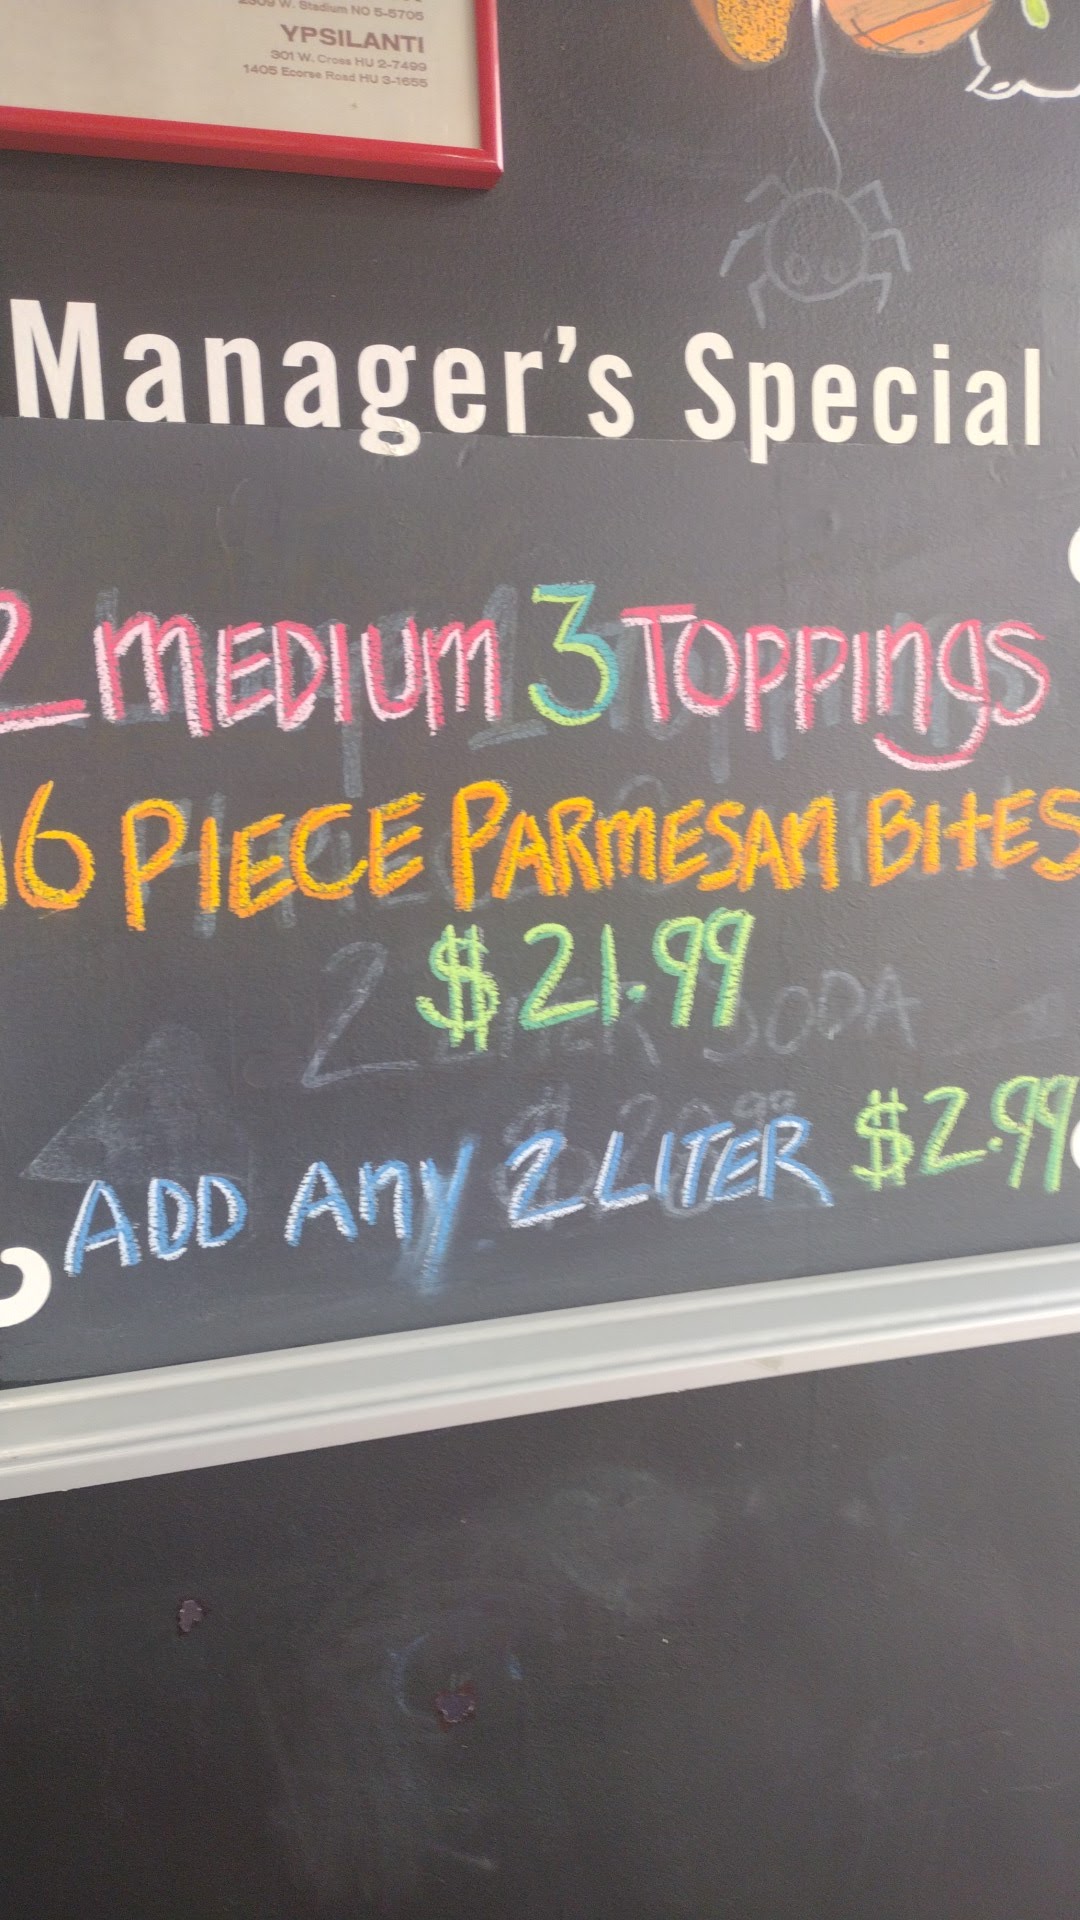 2309 W. Stadium NO 5-5705
YPSILANTI
301 W. Cross HU 2-7499
1405 Ecorse Road HU 3-1655
Manager's Special
2 MEDIUM 3 TOPPINgS
16 PIECE PARMESAN BItES
$21.99
2 LItER SODA
$20.99
ADD ANY 2 LITER $2.99